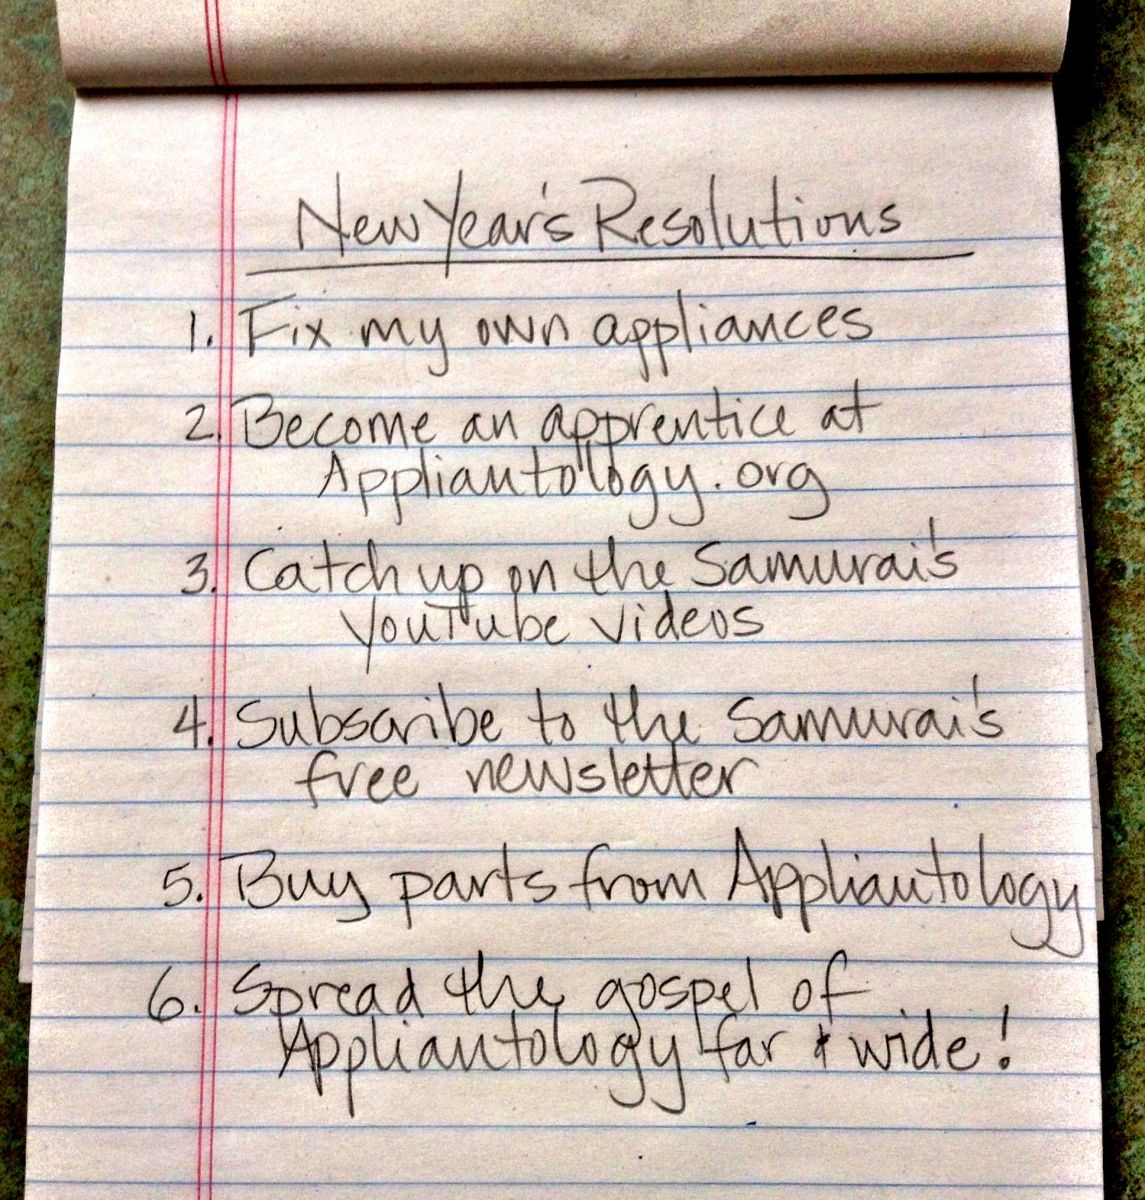 New Year's Resolutions
1. Fix my own appliances
2. Become an apprentice at
Appliantology.org
3. Catch up on the Samurai's
YouTube videos
4. Subscribe to the Samurai's
free newsletter
5. Buy parts from Appliantology
6. Spread the gospel of
Appliantology far & wide!